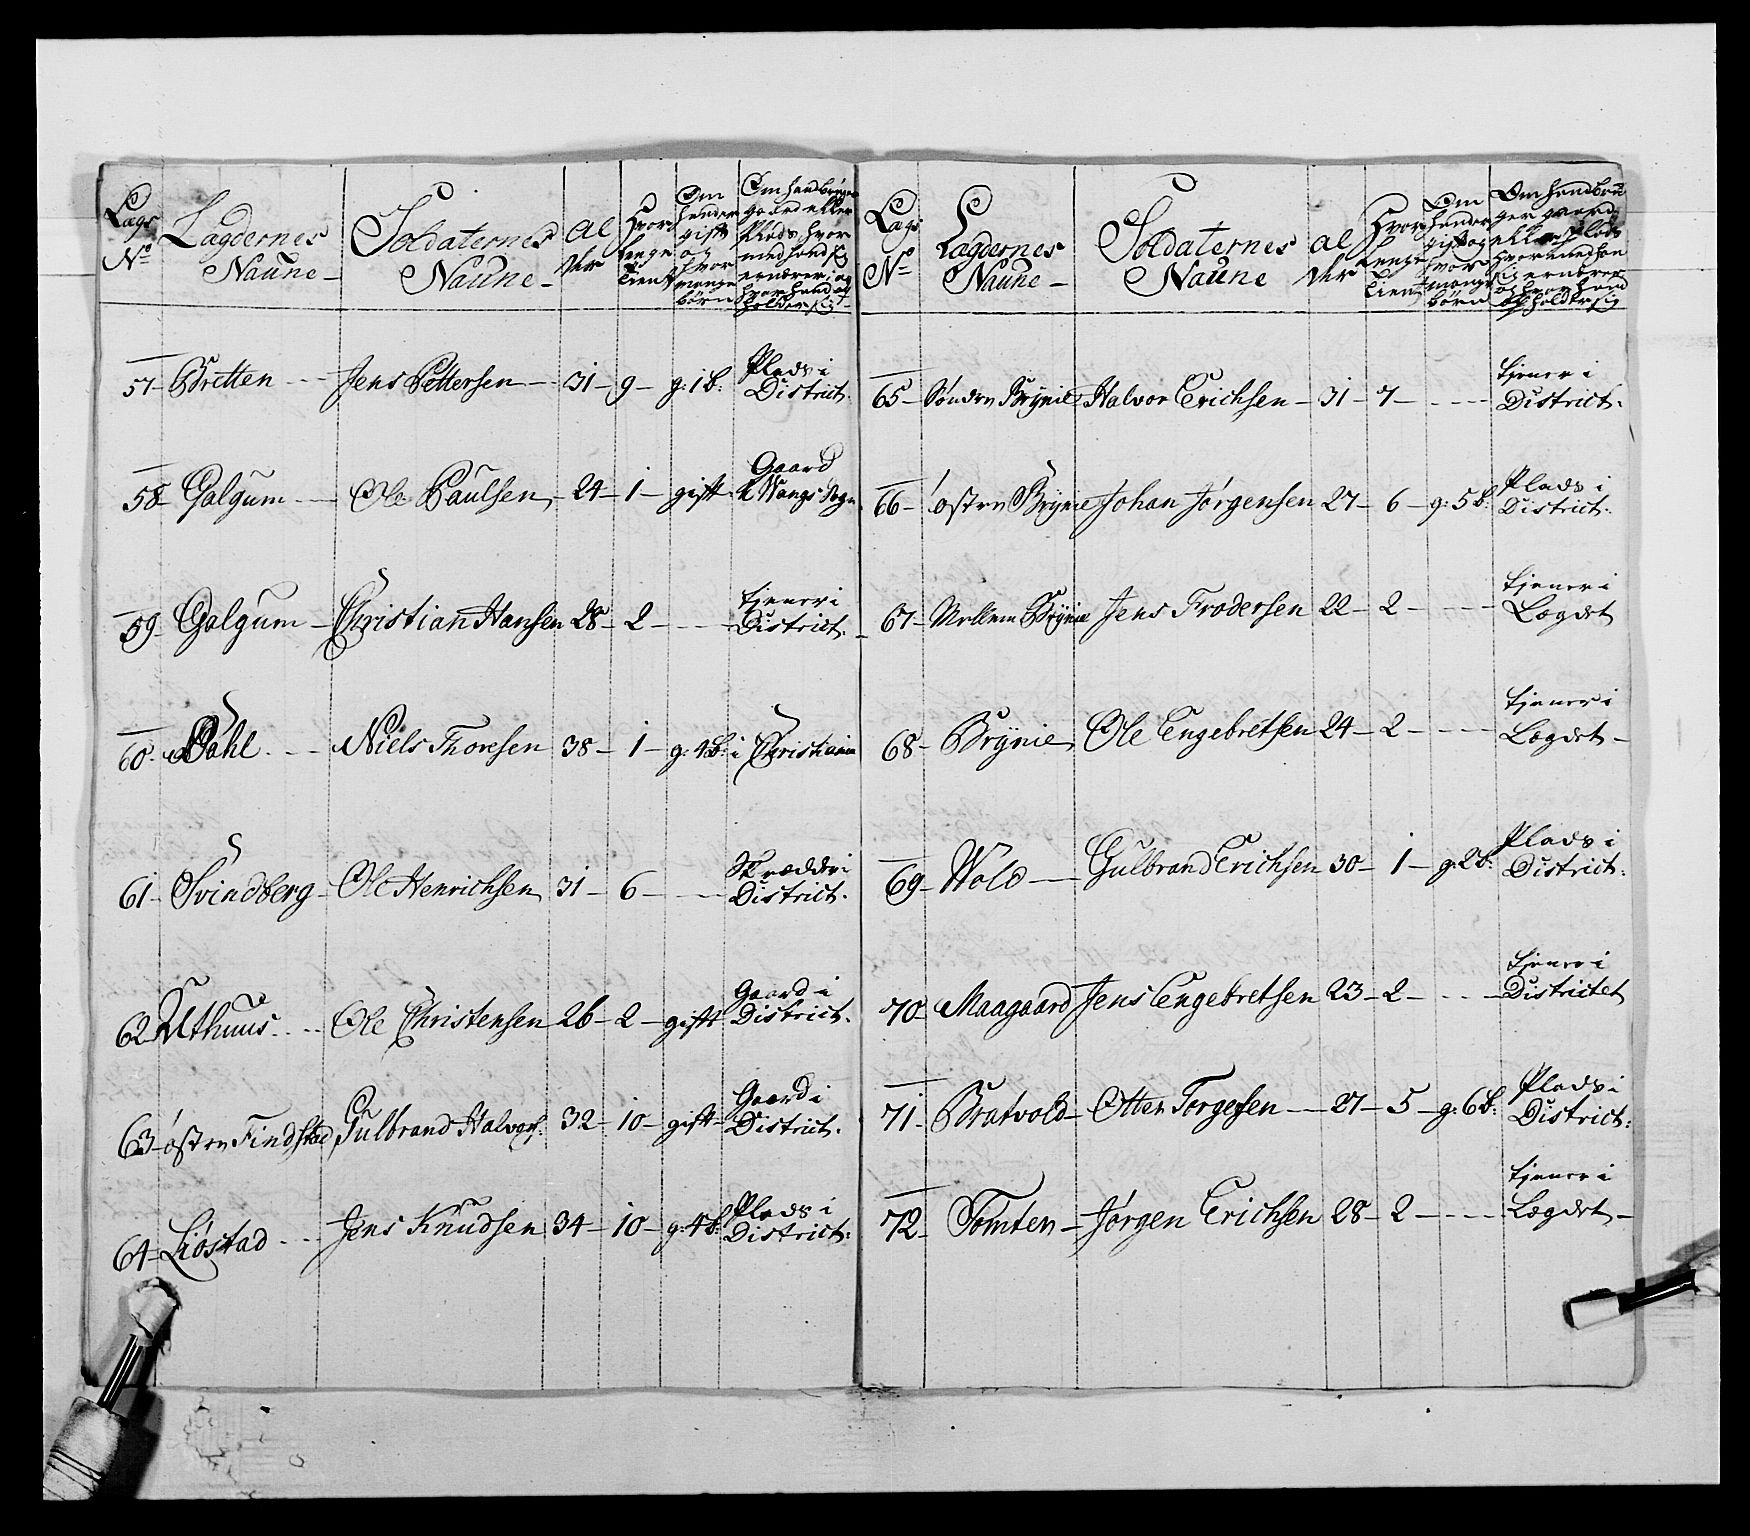 Lægs No
Lægdernes Naune
Soldaternes Naune
Al der
Hvor lenge tient
Om hand er gift og hvor mange børn
Om hand bruger gaard eller Plads hvor med hand sig ernærer, og hvor hand op holder sig
57 Britten Jens Pettersen 31 9 g: 1 b: Plads i District.
58 Galgum Ole Paulsen 24 1 gift Gaard i Wangs Sogn
59 Galgum Christian Hansen 28 2 tjener i District.
60 Dahl Niels Thoresen 38 1 g: 4 b: i Christiania
61 Svindberg Ole Henrichsen 31 6 Skrædder i District.
62 Uthuus Ole Christensen 26 2 gift Gaard i District.
63 østre Findstad Gulbrand Halvors: 32 10 gift Gaard i District.
64 Liøstad Jens Knudsen 34 10 g: 4 b: Plads i District:
Lægs No
Lægdernes Naune
Soldaternes Naune
Al der
Hvor lenge tient
Om hand er gift og hvor mange børn
Om hand bruger gaard eller Plads hvormed han sig ernærer og hvor hand opholder sig
65 Søndre Brynie Halvor Erichsen 31 7 tjener i District.
66 østre Brynie Johan Jørgensen 27 6 g: 5 b: Plads i District.
67 Mellem Brynie Jens Frodersen 22 2 tjener i Lægdet
68 Brynie Ole Engebretsen 24 2 tjener i Lægdet
69 Wold Gulbrand Erichsen 30 1 g: 2 b: Plads i District:
70 Maagaard Jens Engebretsen 23 2 tjener i Districtet
71 Bratvold Otter Torgersen 27 5 g: 6 b: Plads i District:
72 Tomten Jørgen Erichsen 28 2 tjener i Lægdet